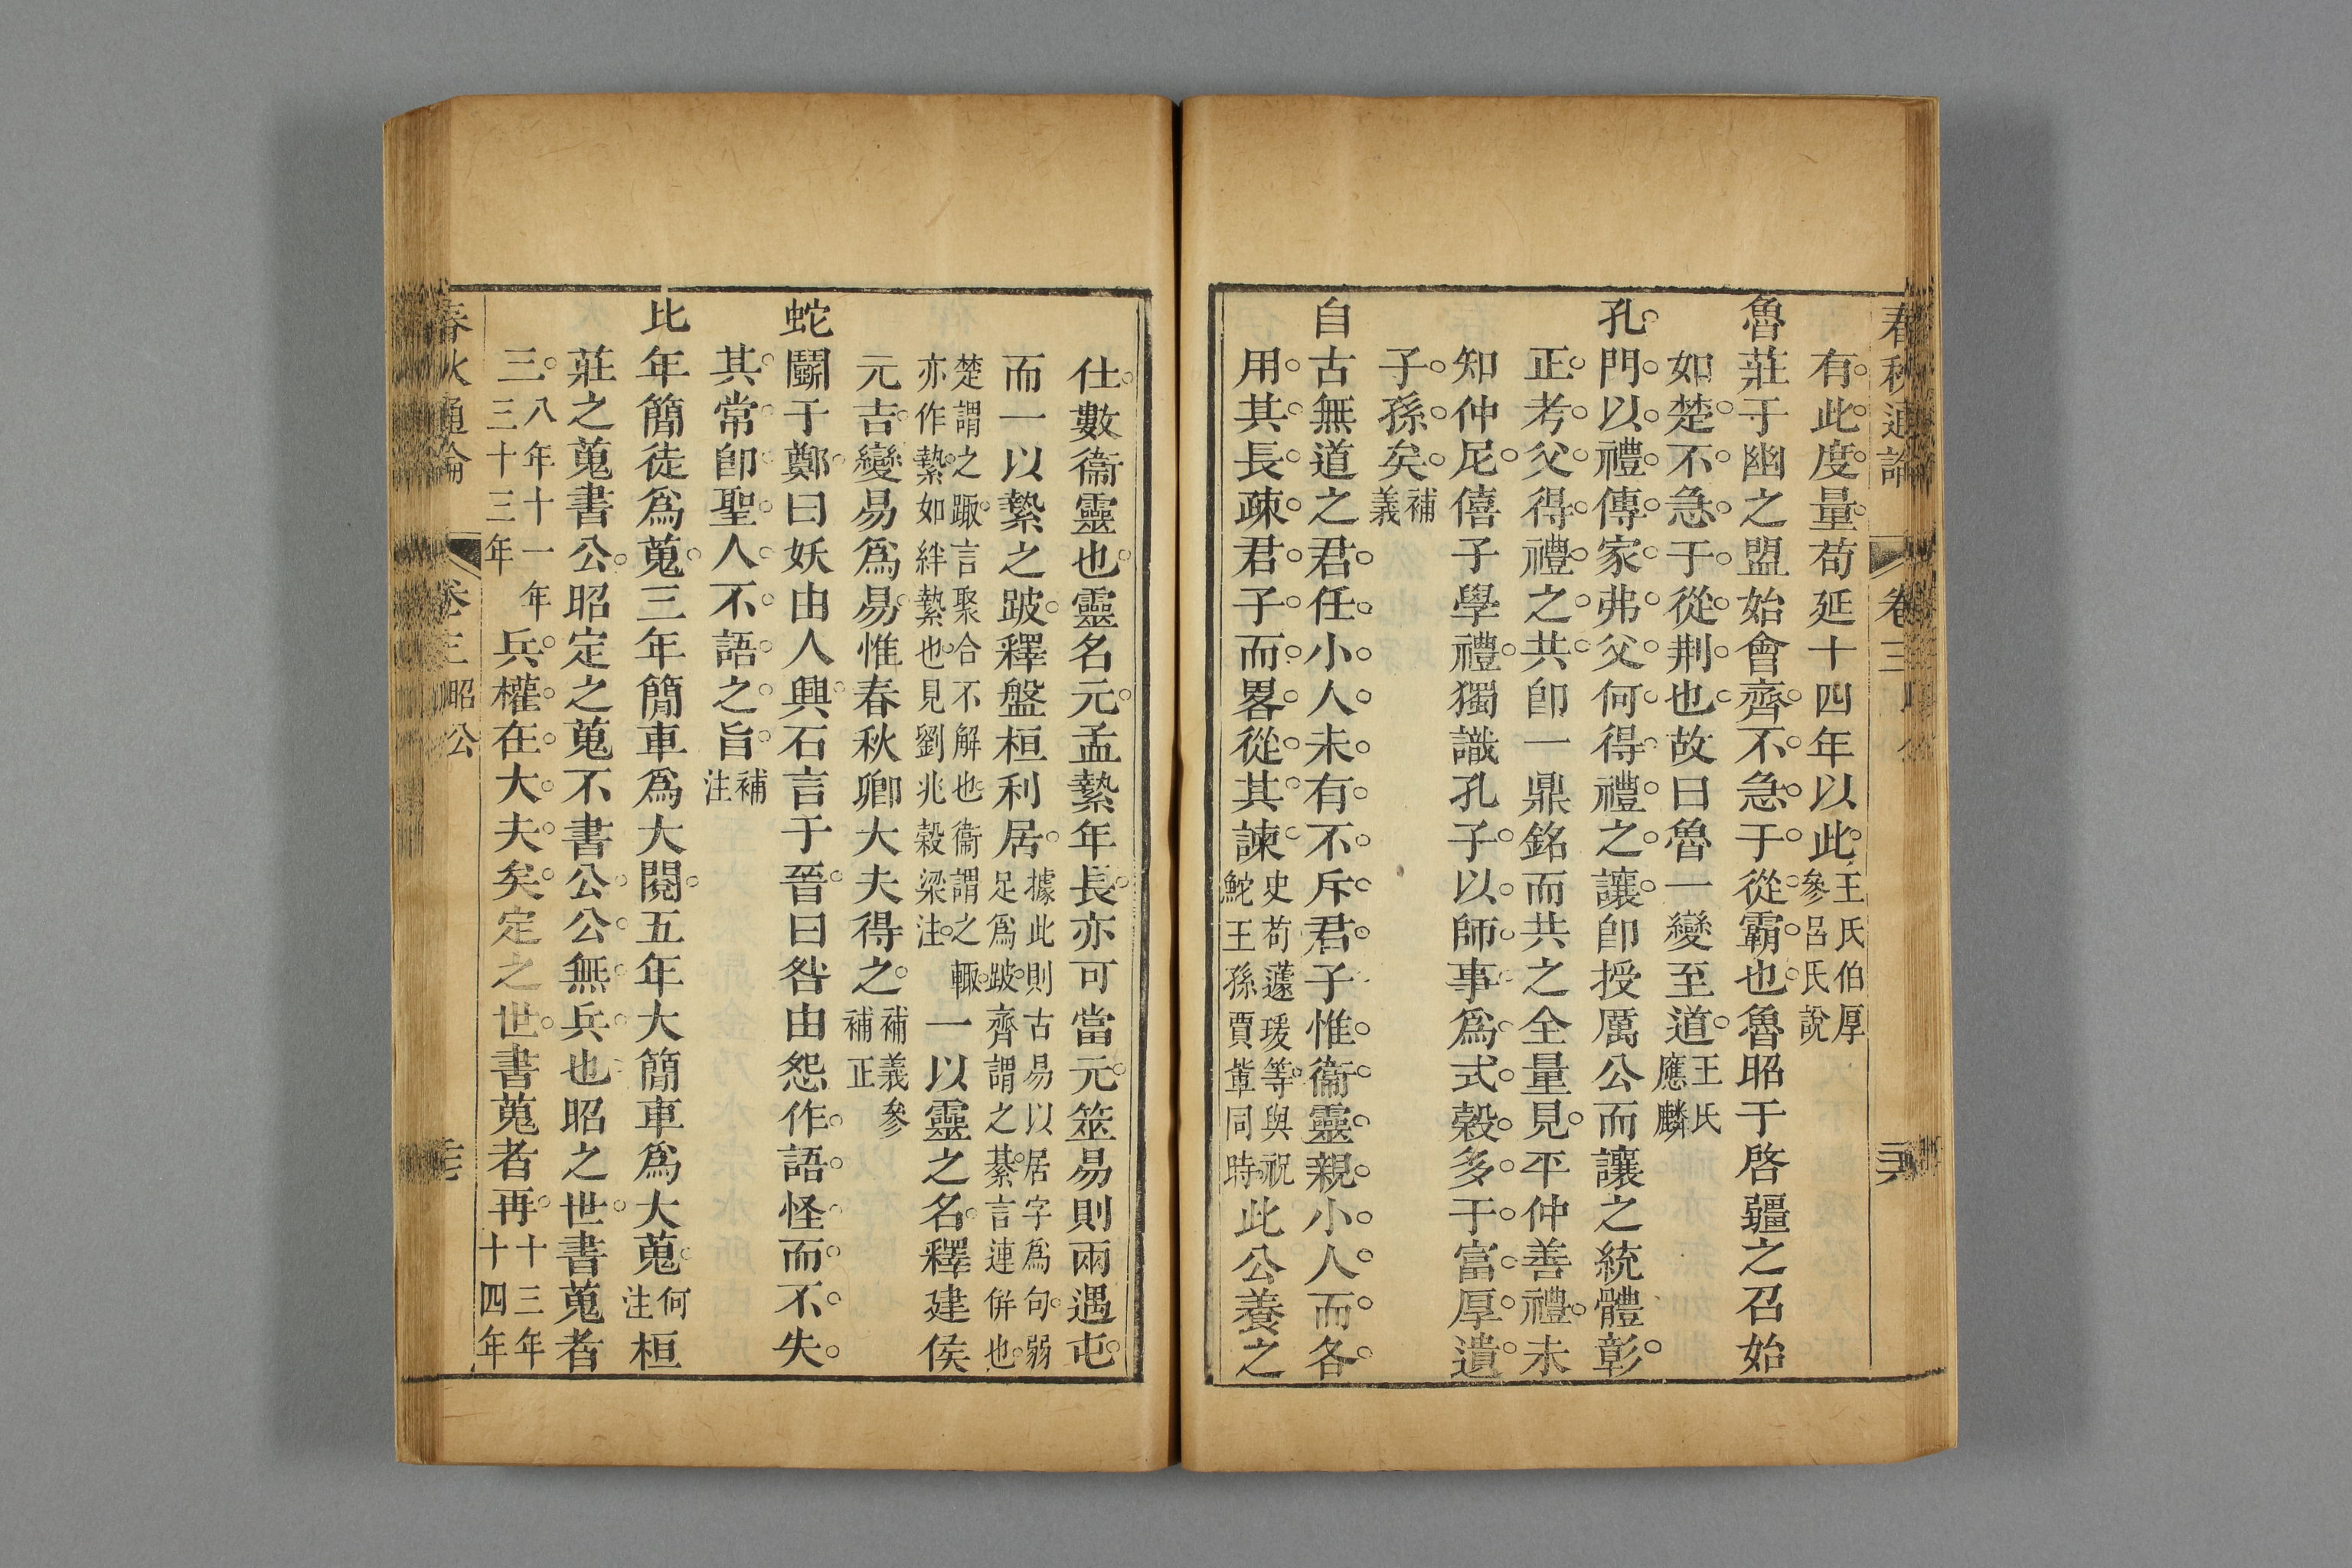 春秋通論 卷三
有此度量苟延十四年以此王氏伯厚參呂氏說
魯莊于幽之盟始會齊不急于從霸也魯昭于啓疆之召始
如楚不急于從荆也故曰魯一變至道王氏應麟
孔門以禮傳家弗父何得禮之讓卽授厲公而讓之統體彰
正考父得禮之共卽一鼎銘而共之全量見平仲善禮未
知仲尼僖子學禮獨識孔子以師事爲式穀多于富厚遺
子孫矣補義
自古無道之君任小人未有不斥君子惟衞靈親小人而各
用其長疎君子而畧從其諫史苟蘧瑗等與祝鮀王孫賈輩同時此公養之
仕數衞靈也靈名元孟縶年長亦可當元筮易則兩遇屯
而一以縶之跛釋盤桓利居據此則古易以居字爲句弱足爲跛齊謂之綦言連倂也
楚謂之踙言聚合不解也衞謂之輒亦作縶如絆縶也見劉兆穀梁注一以靈之名釋建侯
元吉變易爲易惟春秋卿大夫得之補義參補正
蛇鬭于鄭曰妖由人興石言于晉曰咎由怨作語怪而不失
其常卽聖人不語之旨補注
比年簡徒爲蒐三年簡車爲大閱五年大簡車爲大蒐何注桓
莊之蒐書公昭定之蒐不書公公無兵也昭之世書蒐者
三八年十一年三十三年兵權在大夫矣定之世書蒐者再十三年十四年
春秋通論 卷三昭公